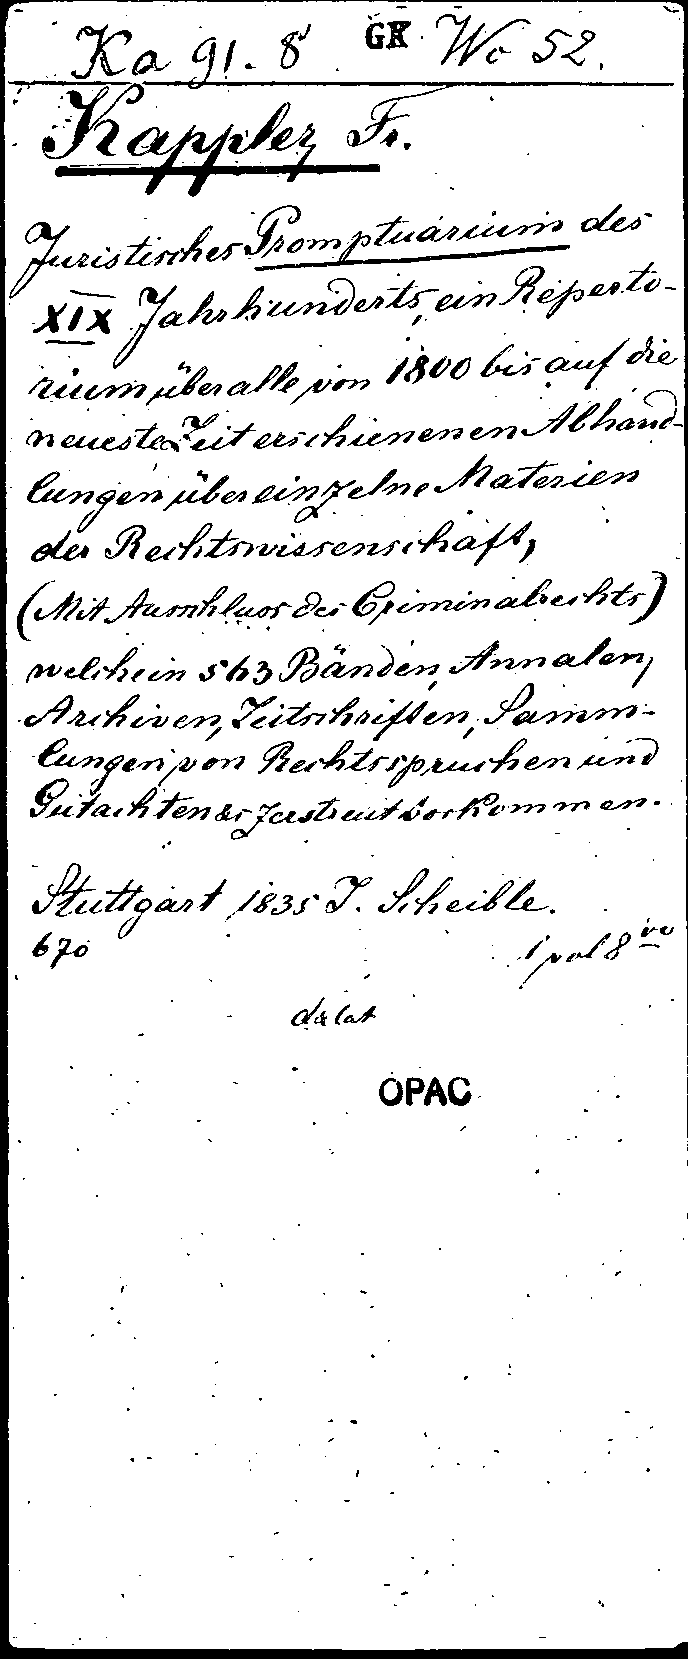 Ka 91. 8 GK Wo 52.
Kappler, Fr.
Juristisches Promptuarium des
XIX Jahrhunderts, ein Reperto-
rium über alle von 1800 bis auf die
neueste Zeit erschienenen Abhand-
lungen über einzelne Materien
der Rechtswissenschaft,
(Mit Ausschluss des Criminalrechts)
welche in 563 Bänden, Annalen,
Archiven, Zeitschriften, Samm-
lungen von Rechtsspruchen und
Gutachten &c zerstreut vorkommen.
Stuttgart 1835 J. Scheible.
670 1 vol 8vo
OPAC